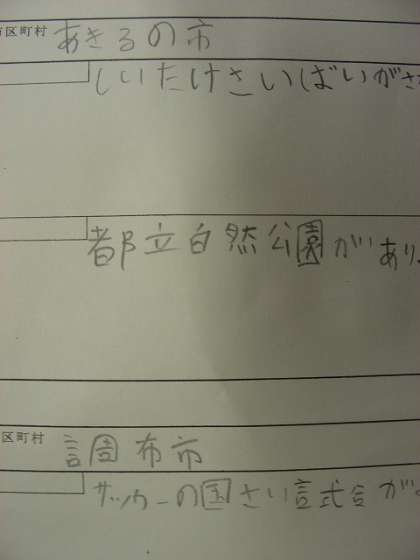 市区町村 あきるの市
しいたけさいばいがさ
都立自然公園があり、
区町村 調布市
サッカーの国さい試合が